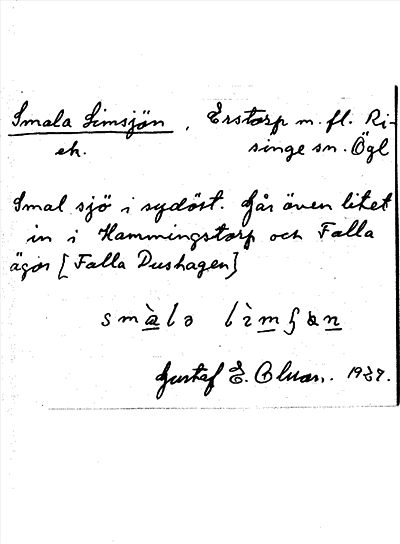 Smala Limsjön , Erstorp m. fl. Ri-
ek. singe sn. Ögl
Smal sjö i sydöst. Går även litet
in i Hammingstorp och Falla
ägor [Falla Dushagen]
smàlə lìmʂɑn
Gustaf E. 1937.